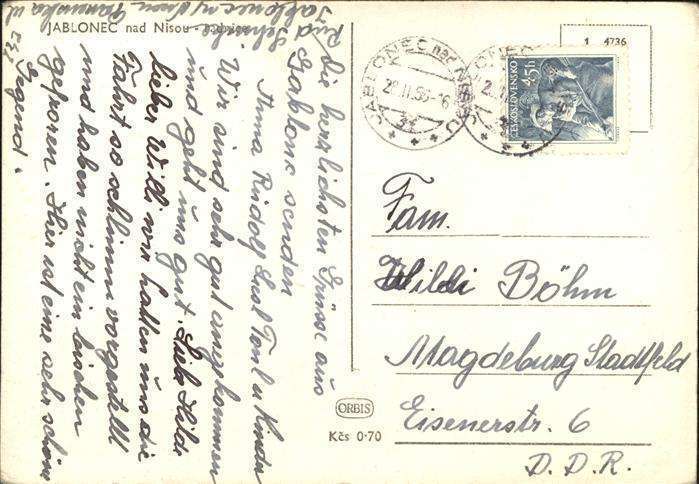 JABLONEC nad Nisou
1 4736
JABLONEC nad NISOU
ČESKOSLOVENSKO
45h
Die herzlichsten Grüsse aus
Gablonz senden
Anna Rudolf Toni u Kinder
Wir sind sehr gut angekommen
und geht uns gut. Liebe Hilde
lieber Willi wir hatten uns die
Fahrt so schlimm vorgestellt
und haben nicht ein bischen
gefroren. Hier ist eine sehr schöne
Gegend.
Fam.
Willi Böhm
Magdeburg Stadtfeld
Eisenerstr. 6
D. D. R.
ORBIS
Kčs 0·70